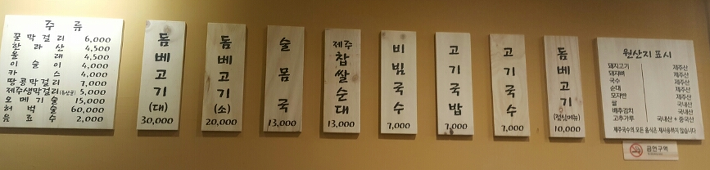 주류
꿀막걸리 6,000
한라산 4,500
올래 4,500
이슬이 4,000
카스 4,000
땅콩막걸리 7,000
제주생막걸리 5,000
오메기술 15,000
허벅술 60,000
음료수 2,000
돔베고기
(대)
30,000
돔베고기
(소)
20,000
술몸국
13,000
제주
찹쌀순대
13,000
비빔국수
7,000
고기국밥
7,000
고기국수
7,000
돔베고기
(점심메뉴)
10,000
원산지표시
돼지고기 제주산
돼지뼈 제주산
국수 제주산
순대 제주산
모자반 제주산
쌀 국내산
배추김치 국내산
고추가루 국내산 + 중국산
제주국수의 모든 음식은 재사용하지 않습니다
금연구역